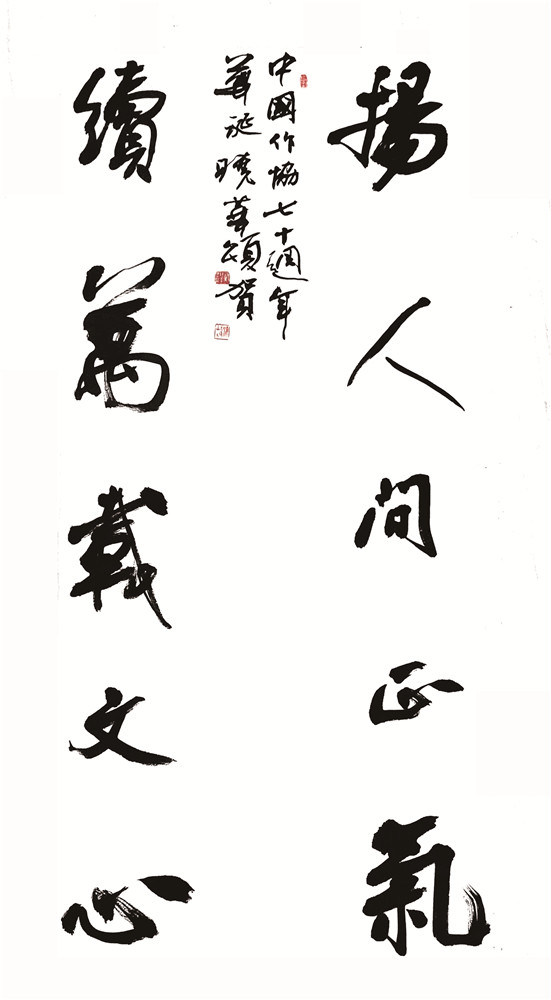 揚人间正氣
續萬載文心
中國作協七十週年
華誕曉華頌賀